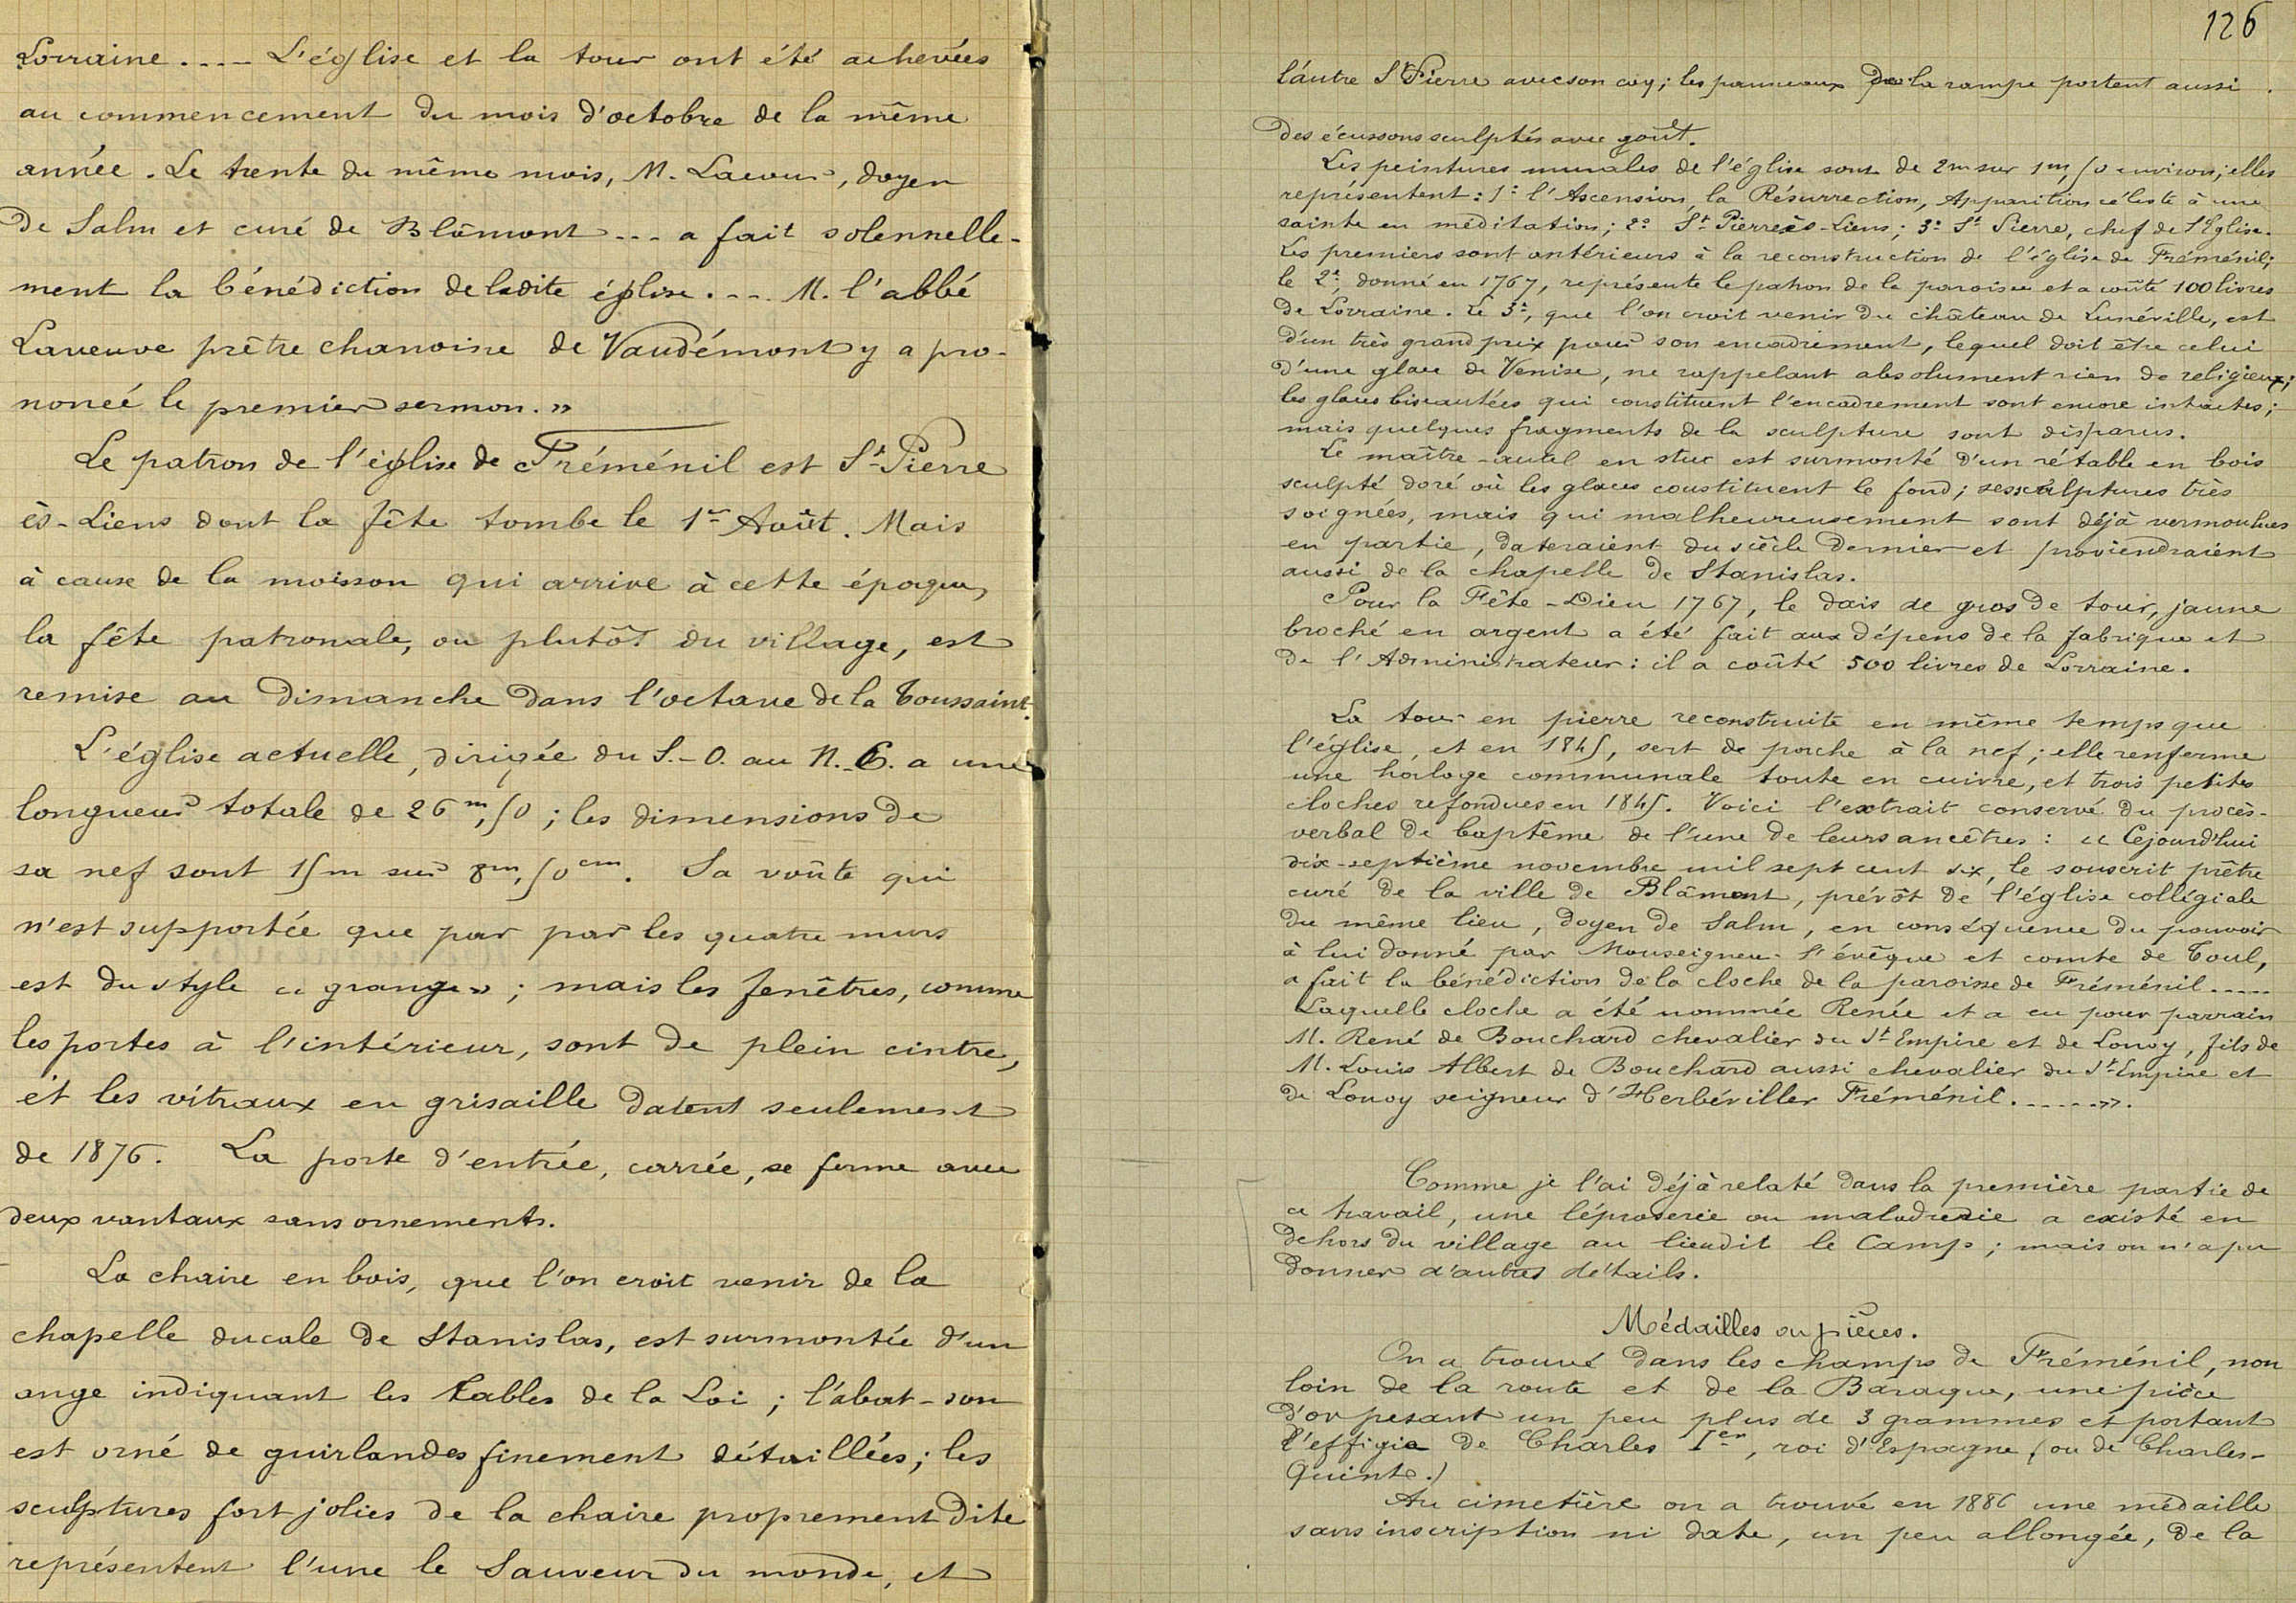 Lorraine .... L'église et la tour ont été achevées
au commencement du mois d'octobre de la même
année. Le trente du même mois, M. Lacour, doyen
de Salm et curé de Blâmont --- a fait solennelle-
ment la bénédiction de ladite église. --- M. l'abbé
Laveuve prêtre chanoine de Vaudémont y a pro-
noncé le premier sermon. »
Le patron de l'église de Fréménil est St Pierre
ès-Liens dont la fête tombe le 1er Août. Mais
à cause de la moisson qui arrive à cette époque,
la fête patronale, ou plutôt du village, est
remise au Dimanche dans l'octave de la Toussaint.
L'église actuelle, dirigée du S.-O. au N.-E. a une
longueur totale de 26m,50 ; les dimensions de
sa nef sont 15m sur 8m,50cm. Sa voûte qui
n'est supportée que par par les quatre murs
est du style « grange » ; mais les fenêtres, comme
les portes à l'intérieur, sont de plein cintre,
et les vitraux en grisaille datent seulement
de 1876. La porte d'entrée, carrée, se ferme avec
deux vantaux sans ornements.
La chaire en bois, que l'on croit venir de la
chapelle ducale de Stanislas, est surmontée d'un
ange indiquant les tables de la Loi ; l'abat-son
est orné de guirlandes finement détaillées ; les
sculptures fort jolies de la chaire proprement dite
représentent l'une le Sauveur du monde, et
126
l'autre St Pierre avec son coq ; les panneaux de la rampe portent aussi
des écussons sculptés avec goût.
Les peintures murales de l'église sont de 2m sur 1m,50 environ ; elles
représentent : 1º l'Ascension, la Résurrection, Apparition céleste à une
sainte en méditation ; 2º St Pierre ès-Liens ; 3º St Pierre, chef de l'Eglise.
Les premiers sont antérieurs à la reconstruction de l'église de Fréménil ;
le 2e, donné en 1767, représente le patron de la paroisse et a coûté 100 livres
de Lorraine. Le 3e, que l'on croit venir du château de Lunéville, est
d'un très grand prix pour son encadrement, lequel doit être celui
d'une glace de Venise, ne rappelant absolument rien de religieux ;
les glaces biseautées qui constituent l'encadrement sont encore intactes ;
mais quelques fragments de la sculpture sont disparus.
Le maître-autel en stuc est surmonté d'un rétable en bois
sculpté doré où les glaces constituent le fond ; ses sculptures très
soignées, mais qui malheureusement sont déjà vermoulues
en partie, dateraient du siècle dernier et proviendraient
aussi de la chapelle de Stanislas.
Pour la Fête-Dieu 1767, le dais de gros de tour, jaune
broché en argent a été fait aux dépens de la fabrique et
de l'Administrateur : il a coûté 500 livres de Lorraine.
La tour en pierre reconstruite en même temps que
l'église, et en 1845, sert de porche à la nef ; elle renferme
une horloge communale toute en cuivre, et trois petites
cloches refondues en 1845. Voici l'extrait conservé du procès-
verbal de baptême de l'une de leurs ancêtres : « Cejourd'hui
dix-septième novembre mil sept cent six, le souscrit prêtre
curé de la ville de Blâmont, prévôt de l'église collégiale
du même lieu, doyen de Salm, en conséquence du pouvoir
à lui donné par Monseigneur l'évêque et comte de Toul,
a fait la bénédiction de la cloche de la paroisse de Fréménil .....
Laquelle cloche a été nommée Renée et a eu pour parrain
M. René de Bouchard chevalier du St Empire et de Lovoy, fils de
M. Louis Albert de Bouchard aussi chevalier du St Empire et
de Lovoy seigneur d'Herbéviller Fréménil ...... ».
Comme je l'ai déjà relaté dans la première partie de
ce travail, une léproserie ou maladrerie a existé en
dehors du village au lieudit le Camp ; mais on n'a pu
donner d'autres détails.
Médailles ou pièces.
On a trouvé dans les champs de Fréménil, non
loin de la route et de la Baraque, une pièce
d'or pesant un peu plus de 3 grammes et portant
l'effigie de Charles Ier, roi d'Espagne (ou de Charles-
Quint.)
Au cimetière on a trouvé en 1886 une médaille
sans inscription ni date, un peu allongée, de la